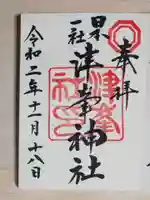 奉拝
日本一社
津峯神社
令和二年十一月十八日